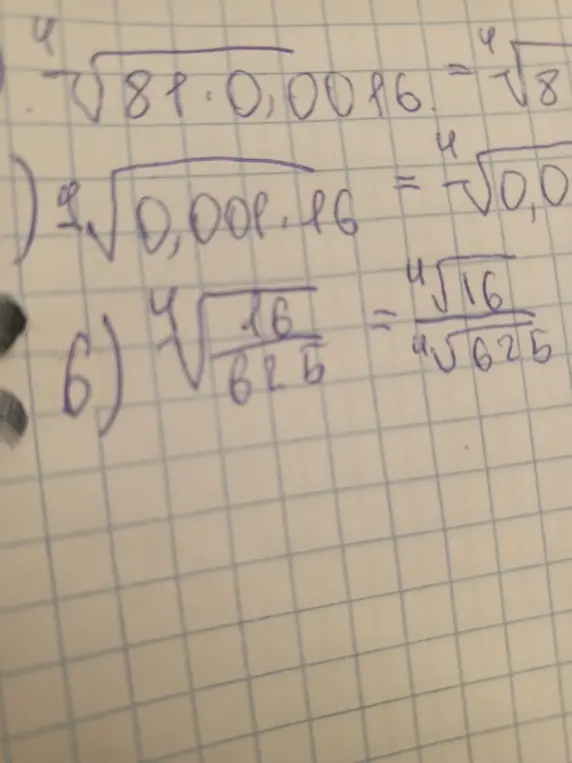 ⁴√81·0,0016 = ⁴√8
) ⁴√0,001·16 = ⁴√0,0
6) ⁴√16/625 = ⁴√16/⁴√625